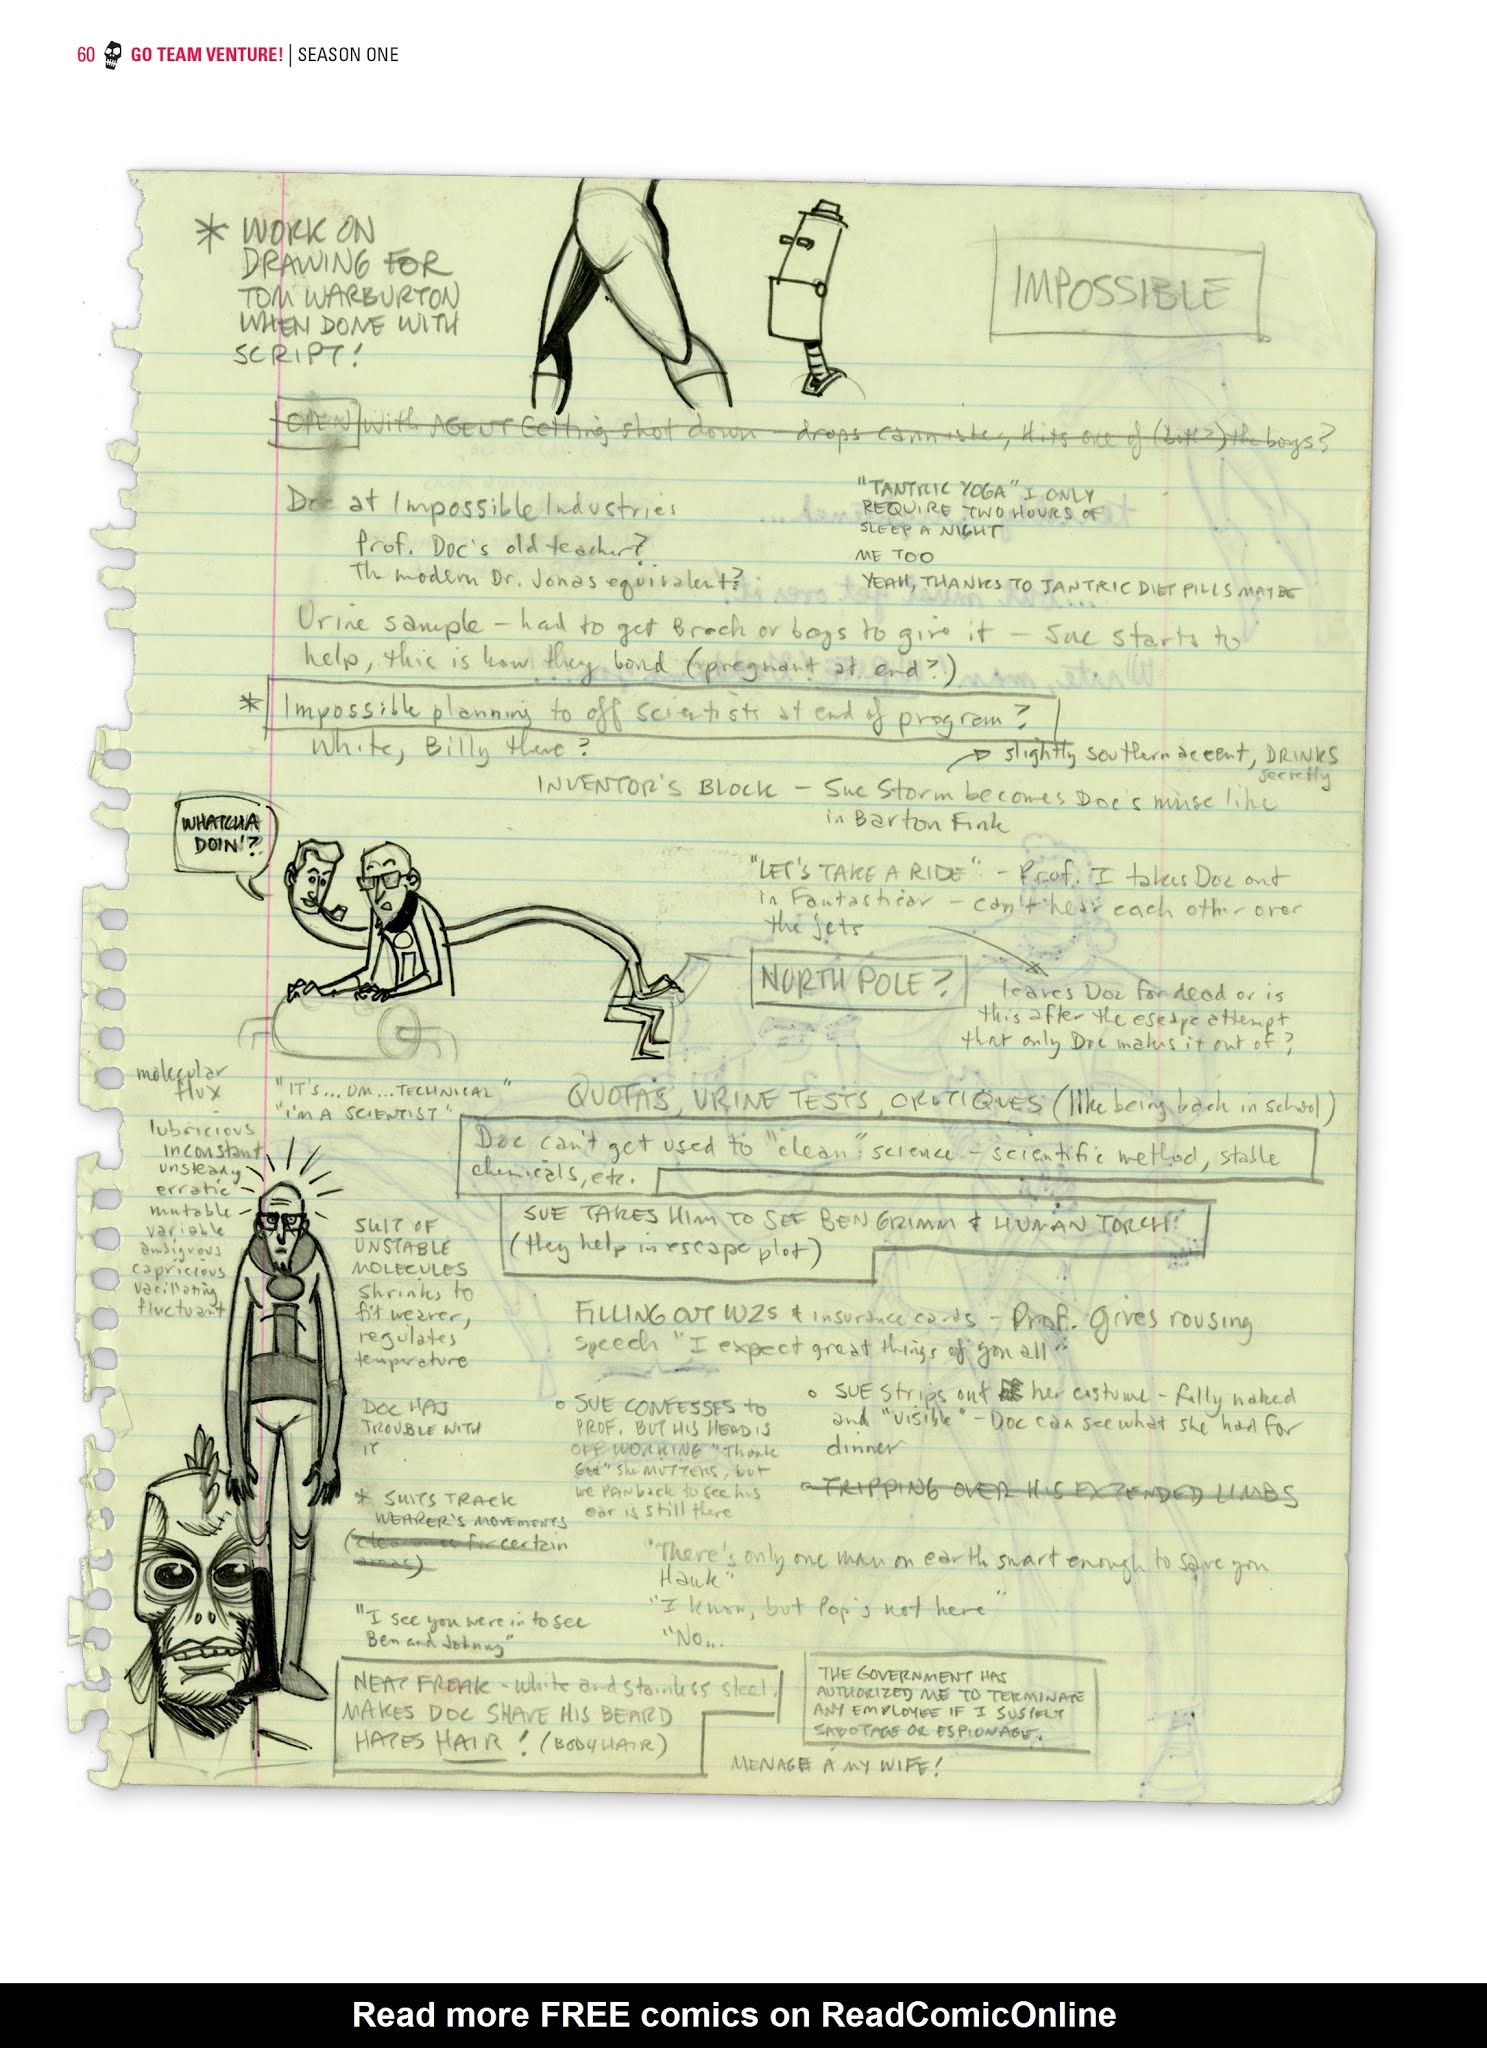 60 GO TEAM VENTURE! | SEASON ONE
* WORK ON
DRAWING FOR
TOM WARBURTON
WHEN DONE WITH
SCRIPT!
IMPOSSIBLE
OPEN with AGENT Getting shot down - drops cannister, Hits one of (both?) the boys?
Doc at Impossible Industries
Prof. Doc's old teacher?
The modern Dr. Jonas equivalent?
"TANTRIC YOGA" I ONLY
REQUIRE TWO HOURS OF
SLEEP A NIGHT
ME TOO
YEAH, THANKS TO TANTRIC DIET PILLS MAYBE
Urine sample - had to get Brock or boys to give it - Sue starts to
help, this is how they bond (pregnant at end?)
* Impossible planning to off scientists at end of program?
White, Billy there?
slightly southern accent, DRINKS
secretly
INVENTOR'S BLOCK - Sue Storm becomes Doc's muse like
in Barton Fink
WHATCHA
DOIN'?
"LET'S TAKE A RIDE" - Prof. I takes Doc out
in Fantasticar - can't hear each other over
the jets
NORTH POLE?
leaves Doc for dead or is
this after the escape attempt
that only Doc makes it out of?
molecular
flux
"IT'S... UM... TECHNICAL"
"I'M A SCIENTIST"
QUOTAS, URINE TESTS, CRITIQUES (like being back in school)
lubricious
inconstant
unsteady
erratic
mutable
variable
ambiguous
capricious
vacillating
fluctuant
Doc can't get used to "clean" science - scientific method, stable
chemicals, etc.
SUE TAKES HIM TO SEE BEN GRIMM & HUMAN TORCH!
(they help in escape plot)
SUIT OF
UNSTABLE
MOLECULES
shrinks to
fit wearer,
regulates
temperature
FILLING OUT W2s & insurance cards - Prof. gives rousing
speech "I expect great things of you all"
DOC HAS
TROUBLE WITH
IT
o SUE CONFESSES to
PROF. BUT HIS HEAD IS
OFF WORKING "Thank
God" she MUTTERS, but
we PAN back to see his
ear is still there
o SUE strips out her costume - fully naked
and "visible" - Doc can see what she had for
dinner
o TRIPPING OVER HIS EXTENDED LIMBS
* SUITS TRACK
WEARER'S MOVEMENTS
certain
areas)
"There's only one man on earth smart enough to save you
Hank"
"I know, but Pop's not here"
"No...
"I see you were in to see
Ben and Johnny"
NEAT FREAK - white and stainless steel.
MAKES DOC SHAVE HIS BEARD
HATES HAIR! (BODY HAIR)
THE GOVERNMENT HAS
AUTHORIZED ME TO TERMINATE
ANY EMPLOYEE IF I SUSPECT
SABOTAGE OR ESPIONAGE.
MENAGE A MY WIFE!
Read more FREE comics on ReadComicOnline